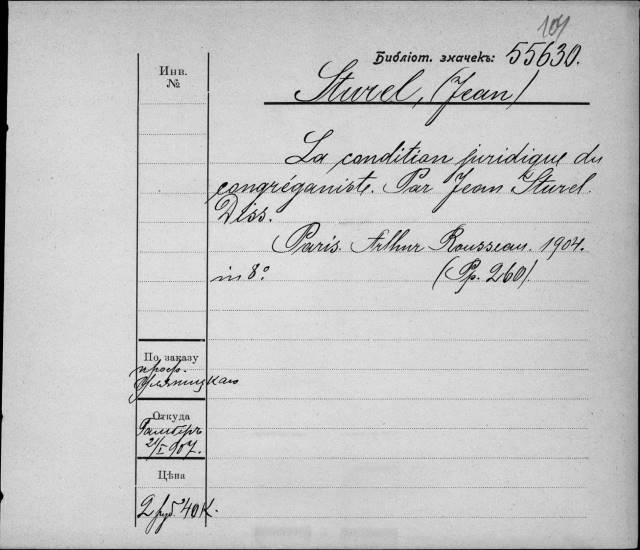 107
Библіот. значекъ: 55630.
Инв.
№
Sturel, (Jean)
La condition juridique du
congréganiste. Par Jean Sturel.
Diss.
Paris. Arthur Rousseau. 1904.
in 8°. (Pp. 260).
По заказу
проф.
Откуда
21/I 907.
Цѣна
2 руб. 40 к.